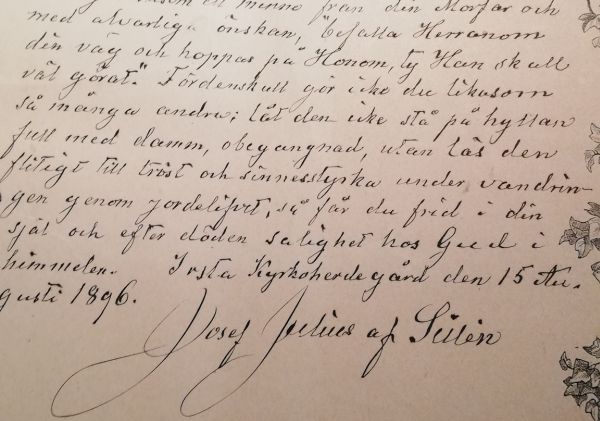 som ett minne från din Morfar och
med alvarliga önskan, "befalla Herranom
din väg och hoppas på Honom, ty Han skall
väl görat." Fördenskull gör icke du likasom
så många andra; låt den icke stå på hyllan
full med damm, obegangnad, utan läs den
flitigt till tröst och sinnesstyrka under vandrin-
gen genom jordelifvet, så får du frid i din
själ och efter döden salighet hos Gud i
himmelen. Irsta Kyrkoherdegård den 15 Au-
gusti 1896.
Josef Julius af Sillén